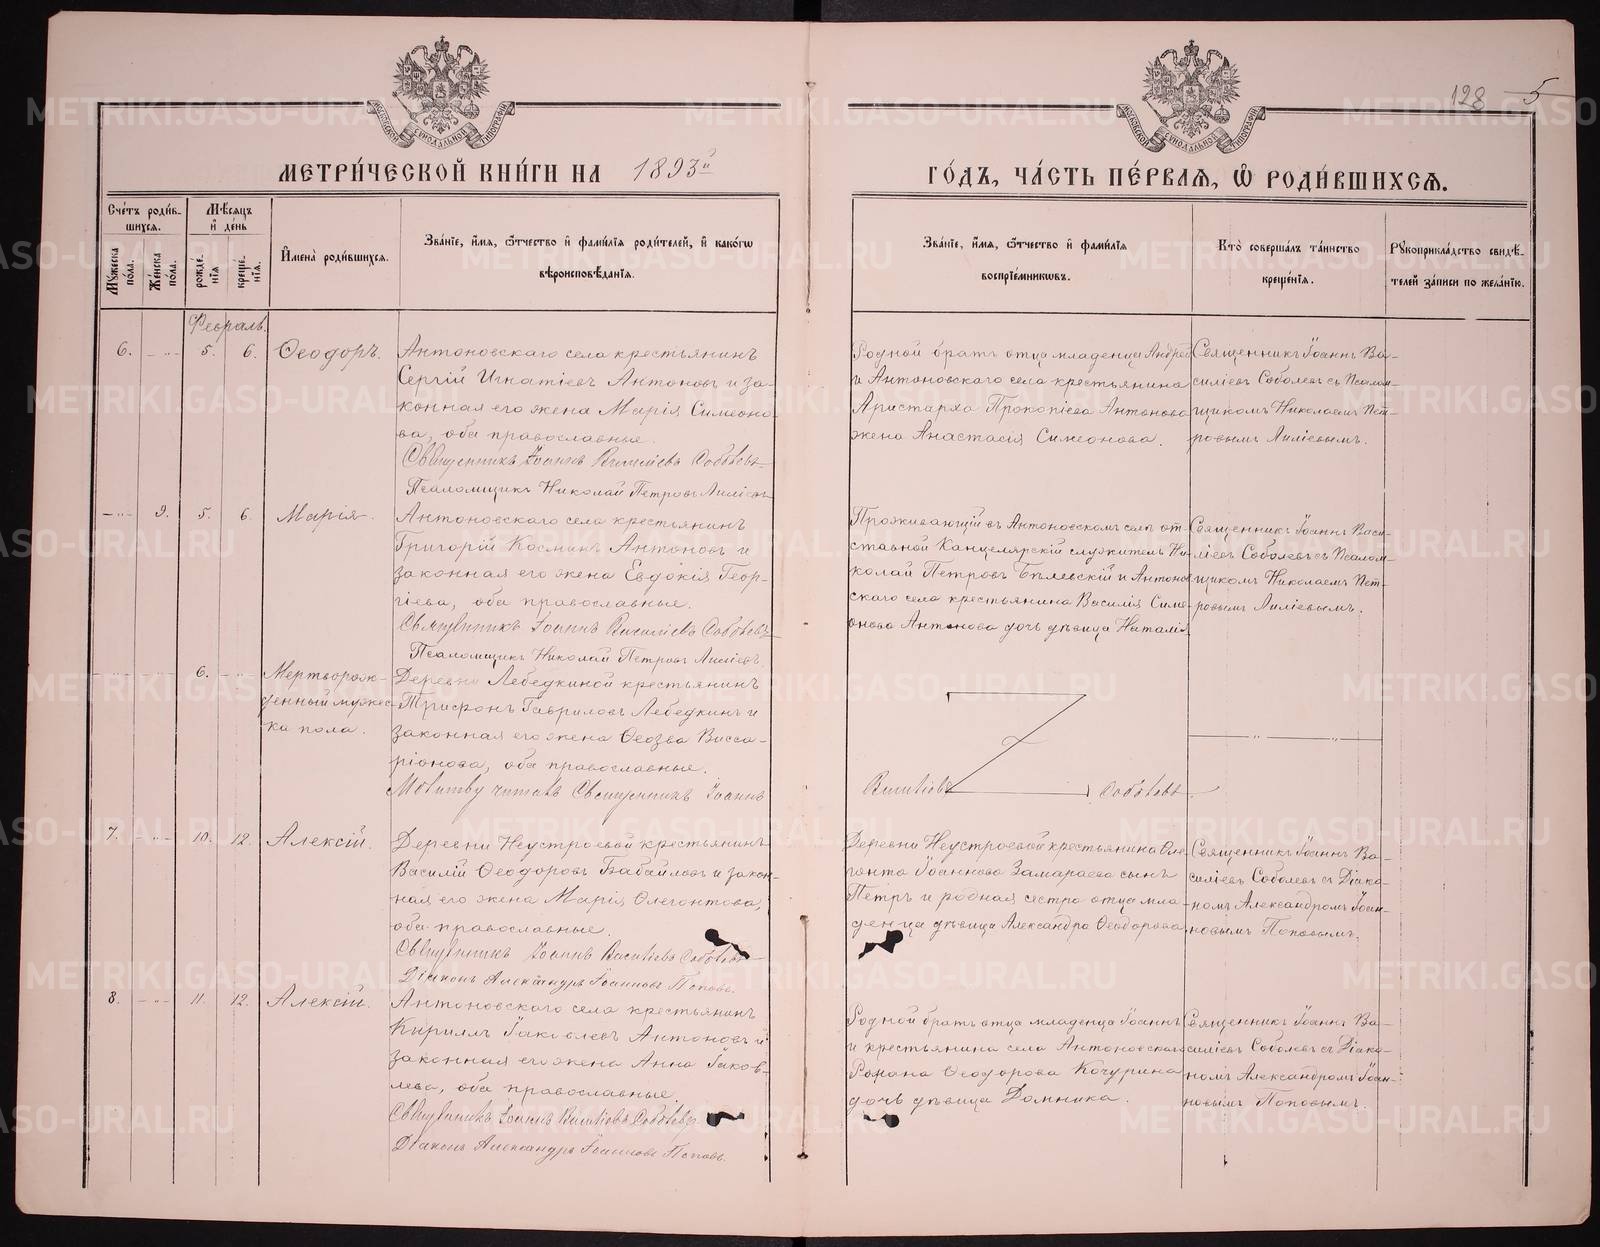 128 5
МЕТРИ́ЧЕСКОЙ КНИ́ГИ НА 1893й
ГО́ДЪ, ЧА́СТЬ ПЕ́РВАЯ, Ѽ РОДИ́ВШИХСЯ.
Сче́тъ роди́в-
шихся.
Му́жеска
по́ла.
Же́нска
по́ла.
Мѣ́сяцъ
и҆ де́нь
рожде́-
нїя
креще́-
нїя.
И҆мена̀ роди́вшихся.
Зва́нїе, и҆́мя, ѻ҆́тчество и҆ фами́лїя роди́телей, и҆ како́гѡ
вѣроисповѣ́данїя.
Зва́нїе, и҆́мя, ѻ҆́тчество и҆ фами́лїя
воспрїе́мникѡвъ.
Кто̀ соверша́лъ та́инство
креще́нїя.
Рꙋкоприкла́дство свидѣ́-
телей за́писи по жела́нїю.
Февраль.
6. 5. 6. Ѳеодоръ.
Антоновскаго села крестьянинъ
Сергій Игнатіевъ Антоновъ и за-
конная его жена Марія Симеоно-
ва, оба православные.
Священникъ Іоаннъ Василіевъ Соболевъ
Псаломщикъ Николай Петровъ Лиліевъ
Родной братъ отца младенца Андрей
и Антоновскаго села крестьянина
Аристарха Прокопіева Антонова
жена Анастасія Симеонова.
Священникъ Іоаннъ Ва-
силіевъ Соболевъ съ Псалом-
щикомъ Николаемъ Пет-
ровымъ Лиліевымъ.
9. 5. 6. Марія.
Антоновскаго села крестьянинъ
Григорій Косминъ Антоновъ и
законная его жена Евдокія Геор-
гіева, оба православные.
Священникъ Іоаннъ Василіевъ Соболевъ
Псаломщикъ Николай Петровъ Лиліевъ.
Проживающій въ Антоновскомъ селѣ от-
ставной Канцелярскій служитель Ни-
колай Петровъ Бѣлевскій и Антонов-
скаго села крестьянина Василія Симе-
онова Антонова дочь дѣвица Наталія.
Священникъ Іоаннъ Васи-
ліевъ Соболевъ съ Псалом-
щикомъ Николаемъ Пет-
ровымъ Лиліевымъ.
6. Мертворож-
денный мужес-
ка пола.
Деревни Лебедкиной крестьянинъ
Трифонъ Гавриловъ Лебедкинъ и
законная его жена Ѳеозва Висса-
ріонова, оба православные.
Молитву читалъ Священникъ Іоаннъ
Василіевъ Соболевъ
7. 10. 12. Алексій.
Деревни Неустроевой крестьянинъ
Василій Ѳеодоровъ Бабайловъ и закон-
ная его жена Марія Олегонтова,
оба православные.
Священникъ Іоаннъ Василіевъ Соболевъ
Діаконъ Александръ Іоанновъ Поповъ.
Деревни Неустроевой крестьянина Оле-
гонта Іоаннова Замараева сынъ
Петръ и родная сестра отца мла-
денца дѣвица Александра Ѳеодорова.
Священникъ Іоаннъ Ва-
силіевъ Соболевъ съ Діако-
номъ Александромъ Іоан-
новымъ Поповымъ.
8. 11. 12. Алексій.
Антоновскаго села крестьянинъ
Кириллъ Іаковлевъ Антоновъ и
законная его жена Анна Іаков-
лева, оба православные.
Священникъ Іоаннъ Василіевъ Соболевъ.
Діаконъ Александръ Іоанновъ Поповъ.
Родной братъ отца младенца Іоаннъ
и крестьянина села Антоновскаго
Романа Ѳеодорова Кочурина
дочь дѣвица Домника.
Священникъ Іоаннъ Ва-
силіевъ Соболевъ съ Діако-
номъ Александромъ Іоан-
новымъ Поповымъ.